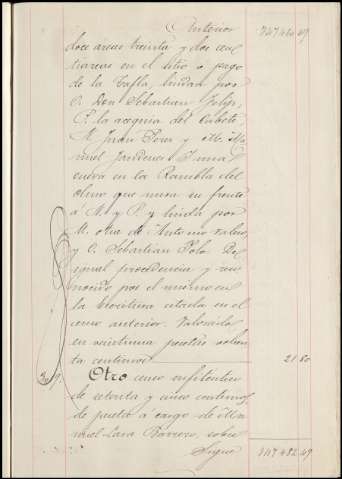 Anterior 747.460,49
doce areas treinta y dos cen
tiareas en el sitio o pago
de la Tafla, lindan por
O. Don Sebastian
P. la acequia del Cubete
M. Juan y N. Ma
nuel Y una
cueva en la Rambla del
que mira su frente
á M. y P. y linda por
M. otra de Antonio
y O. Sebastian Polo. De
igual procedencia y reco
nocido por el mismo en
la escritura citada en el
censo anterior. Valorado
en veintiuna pesetas ochen
ta centimos 21 80
Otro censo enfiteutico
de setenta y cinco centimos
de peseta a cargo de Ma
nuel Lara Barrero, sobre
Sigue 747.482,29